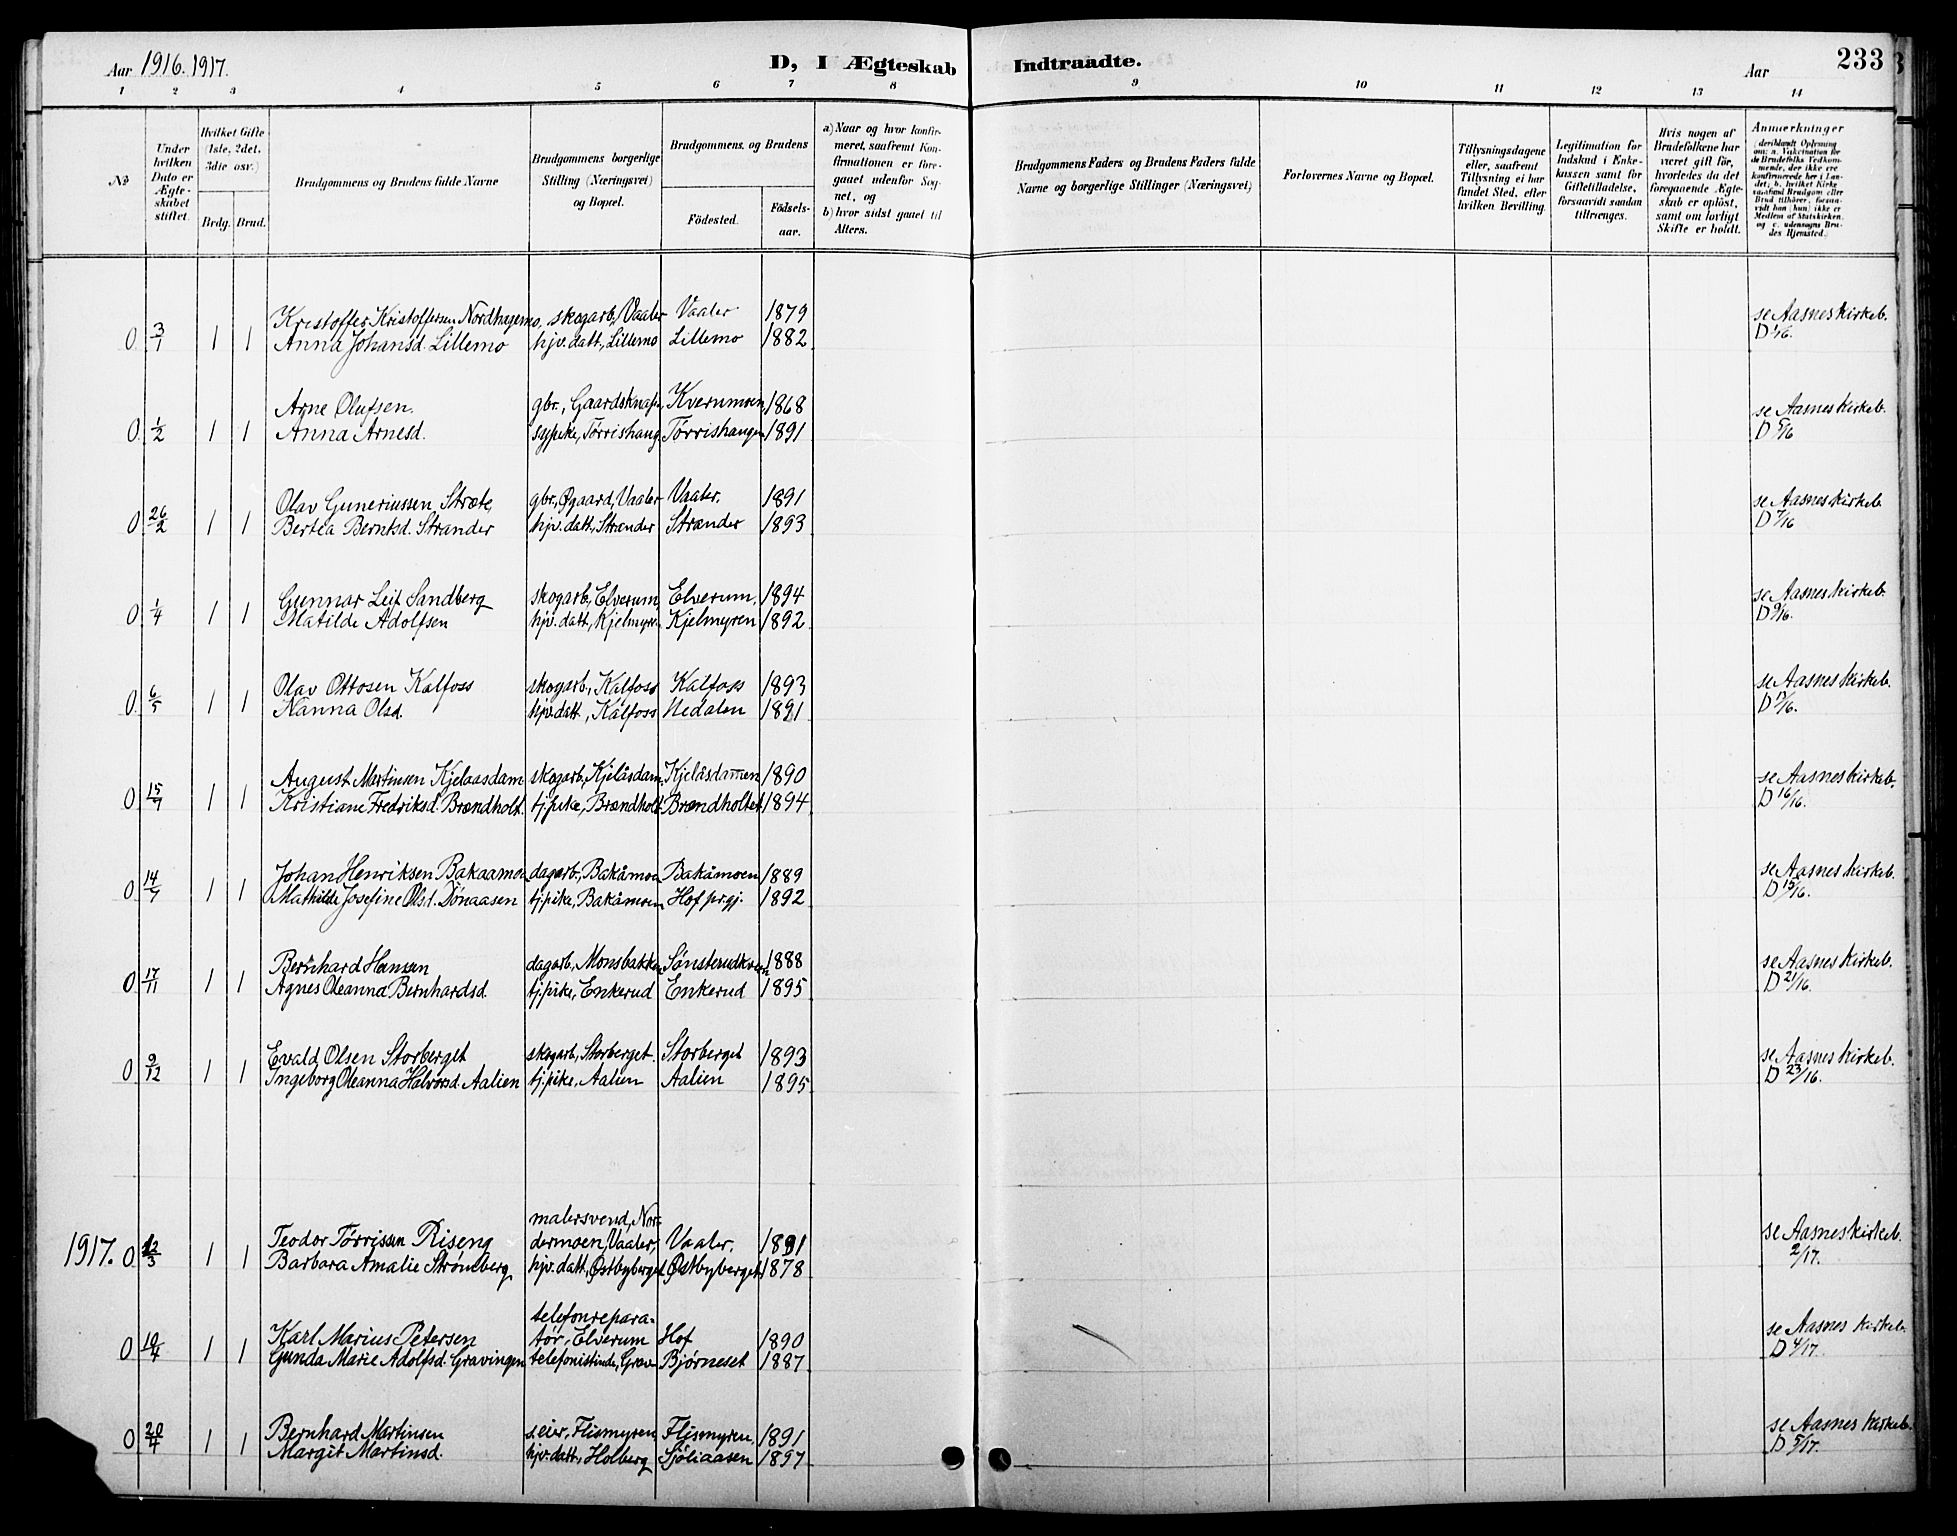 Aar 1916. 1917.
D, I Ægteskab Indtraadte.
Aar 233
1 2 3 4 5 6 7 8 9 10 11 12 13 14
No
Under hvilken Dato er Ægteskabet stiftet.
Hvilket Gifte (1ste, 2det, 3die osv.)
Brdg. Brud.
Brudgommens og Brudens fulde Navne
Brudgommens borgerlige Stilling (Næringsvei) og Bopæl.
Brudgommens og Brudens
Födested.
Födselsaar.
a) Naar og hvor konfirmeret, saafremt Konfirmationen er foregaaet udenfor Sognet, og
b) hvor sidst gaaet til Alters.
Brudgommens Faders og Brudens Faders fulde Navne og borgerlige Stillinger (Næringsvei)
Forlovernes Navne og Bopæl.
Tillysningsdagene eller, saafremt Tillysning ei har fundet Sted, efter hvilken Bevilling.
Legitimation for Indskud i Enkekassen samt for Giftetilladelse, forsaavidt saadan tiltrænges.
Hvis nogen af Brudefolkene har været gift för, hvorledes da det foregaaende Ægteskab er oplöst, samt om lovligt Skifte er holdt.
Anmerkninger (deriblandt Oplysning om: a. Vaccination for de Brudefolks Vedkommende, der ikke ere konfirmerede her i Landet; b. hvilket Kirkesamfund Brudgom eller Brud tilhörer, forsaavidt han (hun) ikke er Medlem af Statskirken, og c. udensogns Brudes Hjemsted.)
0 3/1 1 1 Kristoffer Kristoffersen Nordhagemo, skogarb., Vaaler Vaaler 1879 se Aasnes kirkeb.
Anna Johansd. Lillemo hjv. datt., Lillemo Lillemo 1882 D 1/16.
0 1/2 1 1 Arne Olufsen. gbr., Gaardsknap, Kvernmoen 1868 se Aasnes kirkeb.
Anna Arnesd. sypike, Tørrishaug. Tørrishaugen 1891 D 5/16
0 26/2 1 1 Olav Guneriussen Stræte, gbr., Øgaard, Vaaler Vaaler. 1891 se Aasnes kirkeb.
Bertea Berntsd. Strander hjv. datt., Strander Strander 1893 D 7/16
0 1/4 1 1 Gunnar Leif Sandberg skogarb., Elverum, Elverum. 1894 se Aasnes kirkeb.
Matilde Adolfsen hjv. datt., Kjelmyren Kjelmyren 1892 D 9/16.
0 6/5 1 1 Olav Ottosen Kalfoss skogarb., Kalfoss Kalfoss 1893 se Aasnes kirkeb.
Nanna Olsd. hjv. datt., Kalfoss Nedalen 1891 D /16.
0 15/7 1 1 August Martinsen Kjelaasdam skogarb., Kjelåsdam. Kjelåsdammen 1890 se Aasnes kirkeb.
Kristiane Fredriksd. Brændholt. tj.pike, Brændholt. Brændholtet 1894 D 16/16.
0 14/7 1 1 Johan Henriksen Bakaamoen dagarb., Bakåmoen Bakåmoen 1889 se Aasnes kirkeb.
Mathilde Josefine Olsd. Dønaasen tj.pike, Bakåmoen Hof pr.gj. 1892 D 15/16.
0 17/11 1 1 Bernhard Hansen dagarb., Monsbakken Sønsterudkvern 1888 se Aasnes kirkeb.
Agnes Oleanna Bernhardsd. tj.pike, Enkerud Enkerud 1895 D 21/16.
0 9/12 1 1 Evald Olsen Storberget skogarb., Storberget. Storberget 1893 se Aasnes kirkeb.
Ingeborg Oleanna Halvorsd. Aalien tj.pike, Aalien Aalien 1895 D 23/16.
malersvend, Nor=
1917. 0 12/3 1 1 Teodor Tørrissen Riseng dermoen, Vaaler, Vaaler. 1891 se Aasnes kirkeb.
Barbara Amalie Strømberg hjv. datt., Østbyberget. Østbyberget 1878 2/17.
telefonrepara=
0 10/4 1 1 Karl Marius Petersen tør, Elverum Hof 1890 se Aasnes kirkeb.
Gunda Marie Adolfsd. Gravingen telefonistinde, Grav Bjørneset 1887 D 4/17.
0 20/4 1 1 Bernhard Martinsen s.eier, Flismyren Flismyren, 1891 se Aasnes kirkeb.
Margit Martinsd. hjv. datt., Holberg Sjøliaasen 1897 D 5/17.